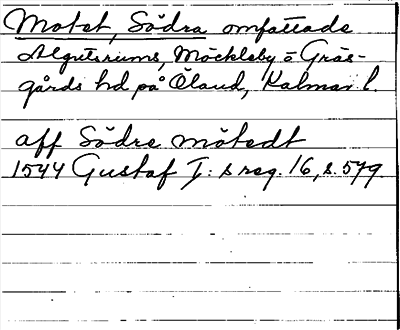 Motet, Södra omfattade
Algutsrums, Möckleby o Gräs-
gårds hd på Öland, Kalmar l.
aff Södre mötedt
1544 Gustaf I: s reg. 16, s. 579.